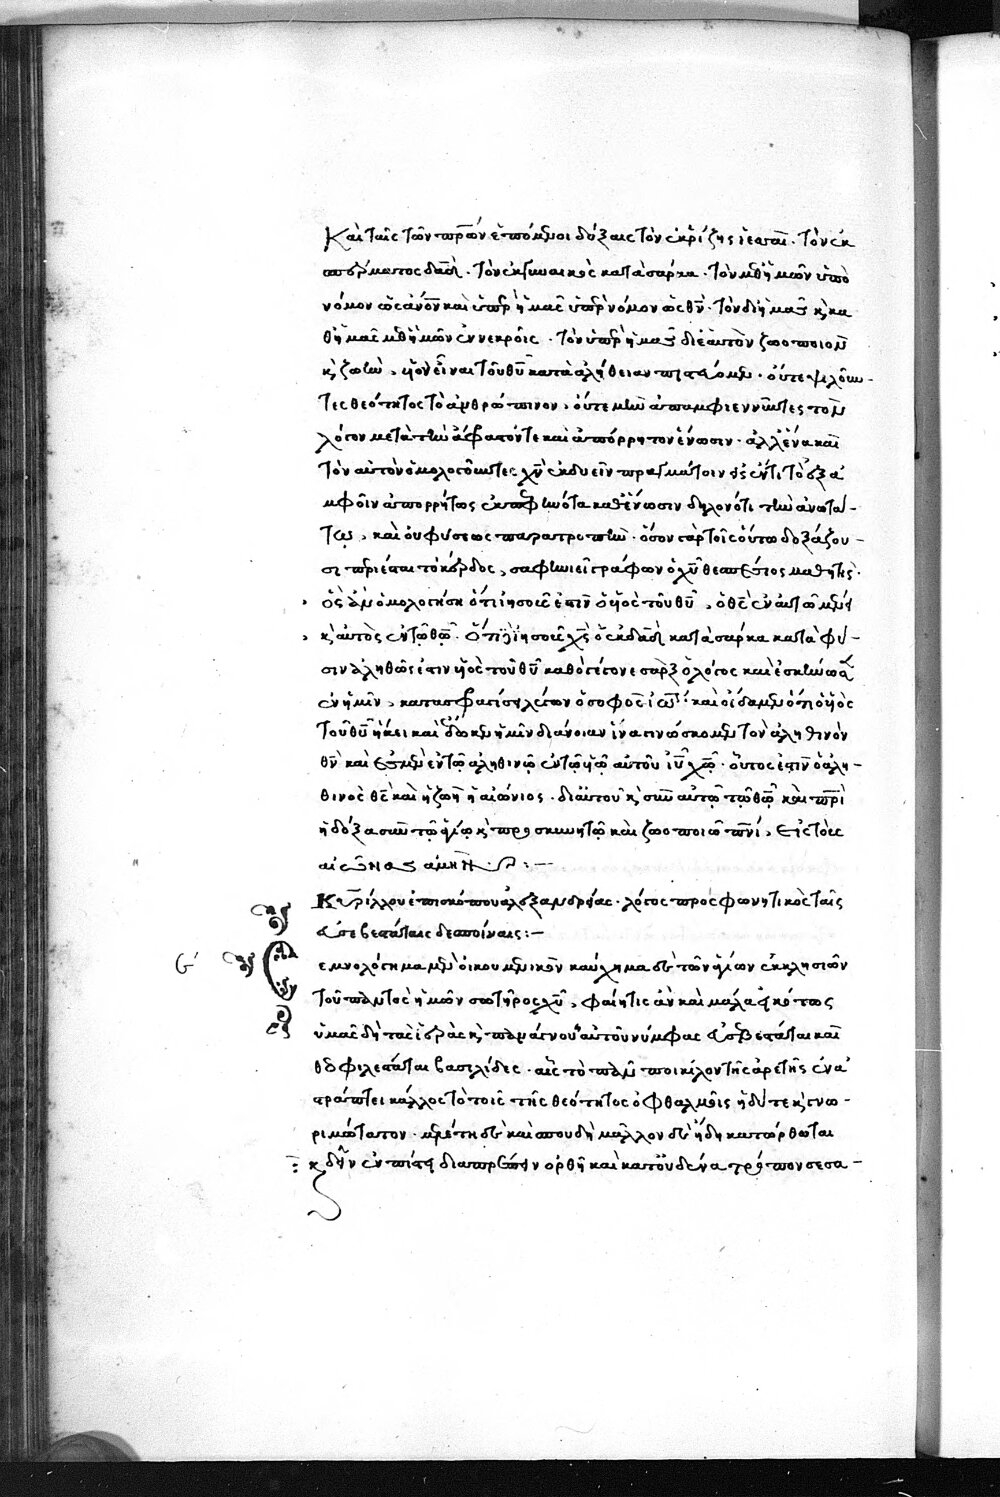 Καὶ ταῖς τῶν πρῶν ἑπόμενοι δόξαις τὸν ἐκ ῥίζης ἰεσσαὶ· τὸν ἐκ
σπέρματος δαδ· τὸν ἐκ γυναικὸς κατὰ σάρκα· τὸν μεθ' ἡμῶν ὑπὸ
νόμον ὡς ἄνον καὶ ὑπὲρ ἡμᾶς ὑπὲρ νόμον ὡς θν· τὸν δι' ἡμᾶς κ κα
θ' ἡμᾶς μεθ' ἡμῶν ἐν νεκροῖς· τὸν ὑπὲρ ἡμᾶς δι' ἑαυτὸν ζωοποιὸν
κ ζωὴν, υἱὸν εἶναι τοῦ θυ κατὰ ἀλήθειαν πιστεύομεν· οὔτε ψιλοῦν-
τες θεότητος τὸ ἀνθρώπινον, οὔτε μὴν ἀπαμφιεννῦντες τὸν
λόγον μετὰ τὴν ἄφατόν τε καὶ ἀπόρρητον ἕνωσιν· ἀλλ' ἕνα καὶ
τὸν αὐτὸν ὁμολογοῦντες υἱὸν ἐκ δυεῖν πραγμάτοιν εἰς ἕν τι τὸ ἐξ ἀ
μφοῖν ἀπορρήτως ἐκπεφηνότα καθ' ἕνωσιν δηλονότι τὴν ἀνωτά-
τω, καὶ οὐ φύσεως παρατροπὴν· ὅσον γὰρ τοῖς οὕτω δοξάζου-
σι πρόσεστι τὸ κέρδος, σαφηνιεῖ γράφων ὁ χυ θεσπέσιος μαθητής·
ὃς ἂν ὁμολογήσῃ ὅτι ἰησοῦς ἐστὶν ὁ υἱὸς τοῦ θυ, ὁ θς ἐν αὐτῶ μένει
κ αὐτὸς ἐν τῶ θω· ὅτι δὲ ἰησοῦς χς ὁ ἐκ δαδ κατὰ σάρκα κατὰ φύ-
σιν ἀληθῶς ἐστιν υἱὸς τοῦ θυ καθὸ γέγονε σὰρξ ὁ λόγος καὶ ἐσκήνωσεν
ἐν ἡμῖν, κατασφραγίσει λέγων ὁ σοφὸς ἰω· καὶ οἴδαμεν ὅτι ὁ υἱὸς
τοῦ θυ ἥκει καὶ δέδωκεν ἡμῖν διάνοιαν ἵνα γινώσκομεν τὸν ἀληθινὸν
θν καὶ ἐσμὲν ἐν τῶ ἀληθινῶ ἐν τῶ υἱῶ αὐτοῦ ἰυ χω· οὗτος ἐστὶν ὁ ἀλη-
θινὸς θς καὶ ἡ ζωὴ ἡ αἰώνιος· δι' αὐτοῦ κ σὺν αὐτῶ τῶ θω καὶ πρὶ
ἡ δόξα σὺν τῶ ἁγίω κ προσκυνητῶ καὶ ζωοποιῶ πνι, εἰς τοὺς
αἰῶνας ἀμήν:—
Κυρίλλου ἐπισκόπου ἀλεξανδρείας· λόγος προσφωνητικὸς ταῖς
εὐσεβεστάταις δεσποίναις:—
ς΄ Σεμνολόγημα μὲν οἰκουμενικὸν καύχημα δὲ τῶν ἁγίων ἐκκλησιῶν
τοῦ πάντων ἡμῶν σωτῆρος χυ, φαίη τις ἂν καὶ μάλα εἰκότως
ὑμᾶς δὴ τὰς ἱερὰς κ πανάγνους αὐτοῦ νύμφας εὐσεβέσταται καὶ
θεοφιλέσταται βασιλίδες· αἷς τὸ παμποίκιλον τῆς ἀρετῆς ἐνα
στράπτει κάλλος τὸ τοῖς τῆς θεότητος ὀφθαλμοῖς ἥδυ τε κ γνω-
ριμώτατον· μελέτη δὲ καὶ σπουδὴ μᾶλλον δὲ ἤδη κατώρθωται
κ δεῖν ἐν πίστει διαπρέπειν ὀρθῇ καὶ κατ' οὐδένα τρόπον σεσα-